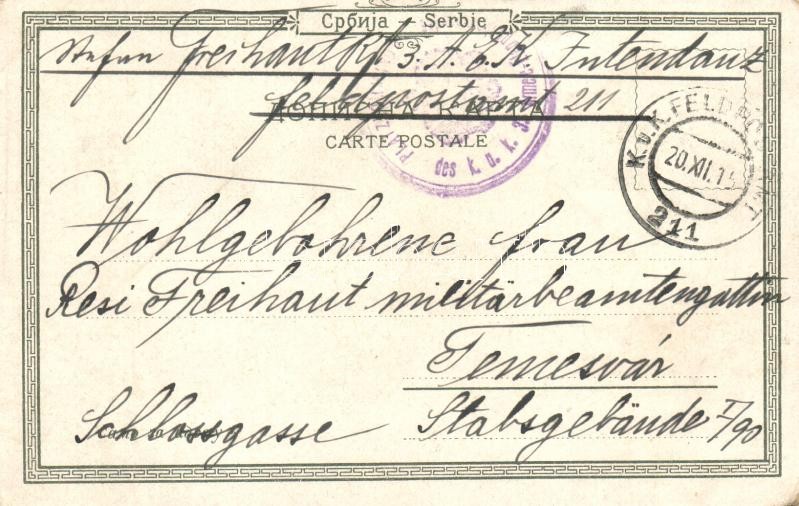 Србија Serbie
Stefan Freihaut 3. A. E. K. Intendanz
Feldpostamt 211
ДОПИСНА КАРТА
CARTE POSTALE
des k. u. k. 3.
K. u. K. FELDPOSTAMT
20.XII.15
211
Wohlgebohrene frau
Resi Freihaut militärbeamtengattin
Temesvár
Schlossgasse Stabsgebäude I/90